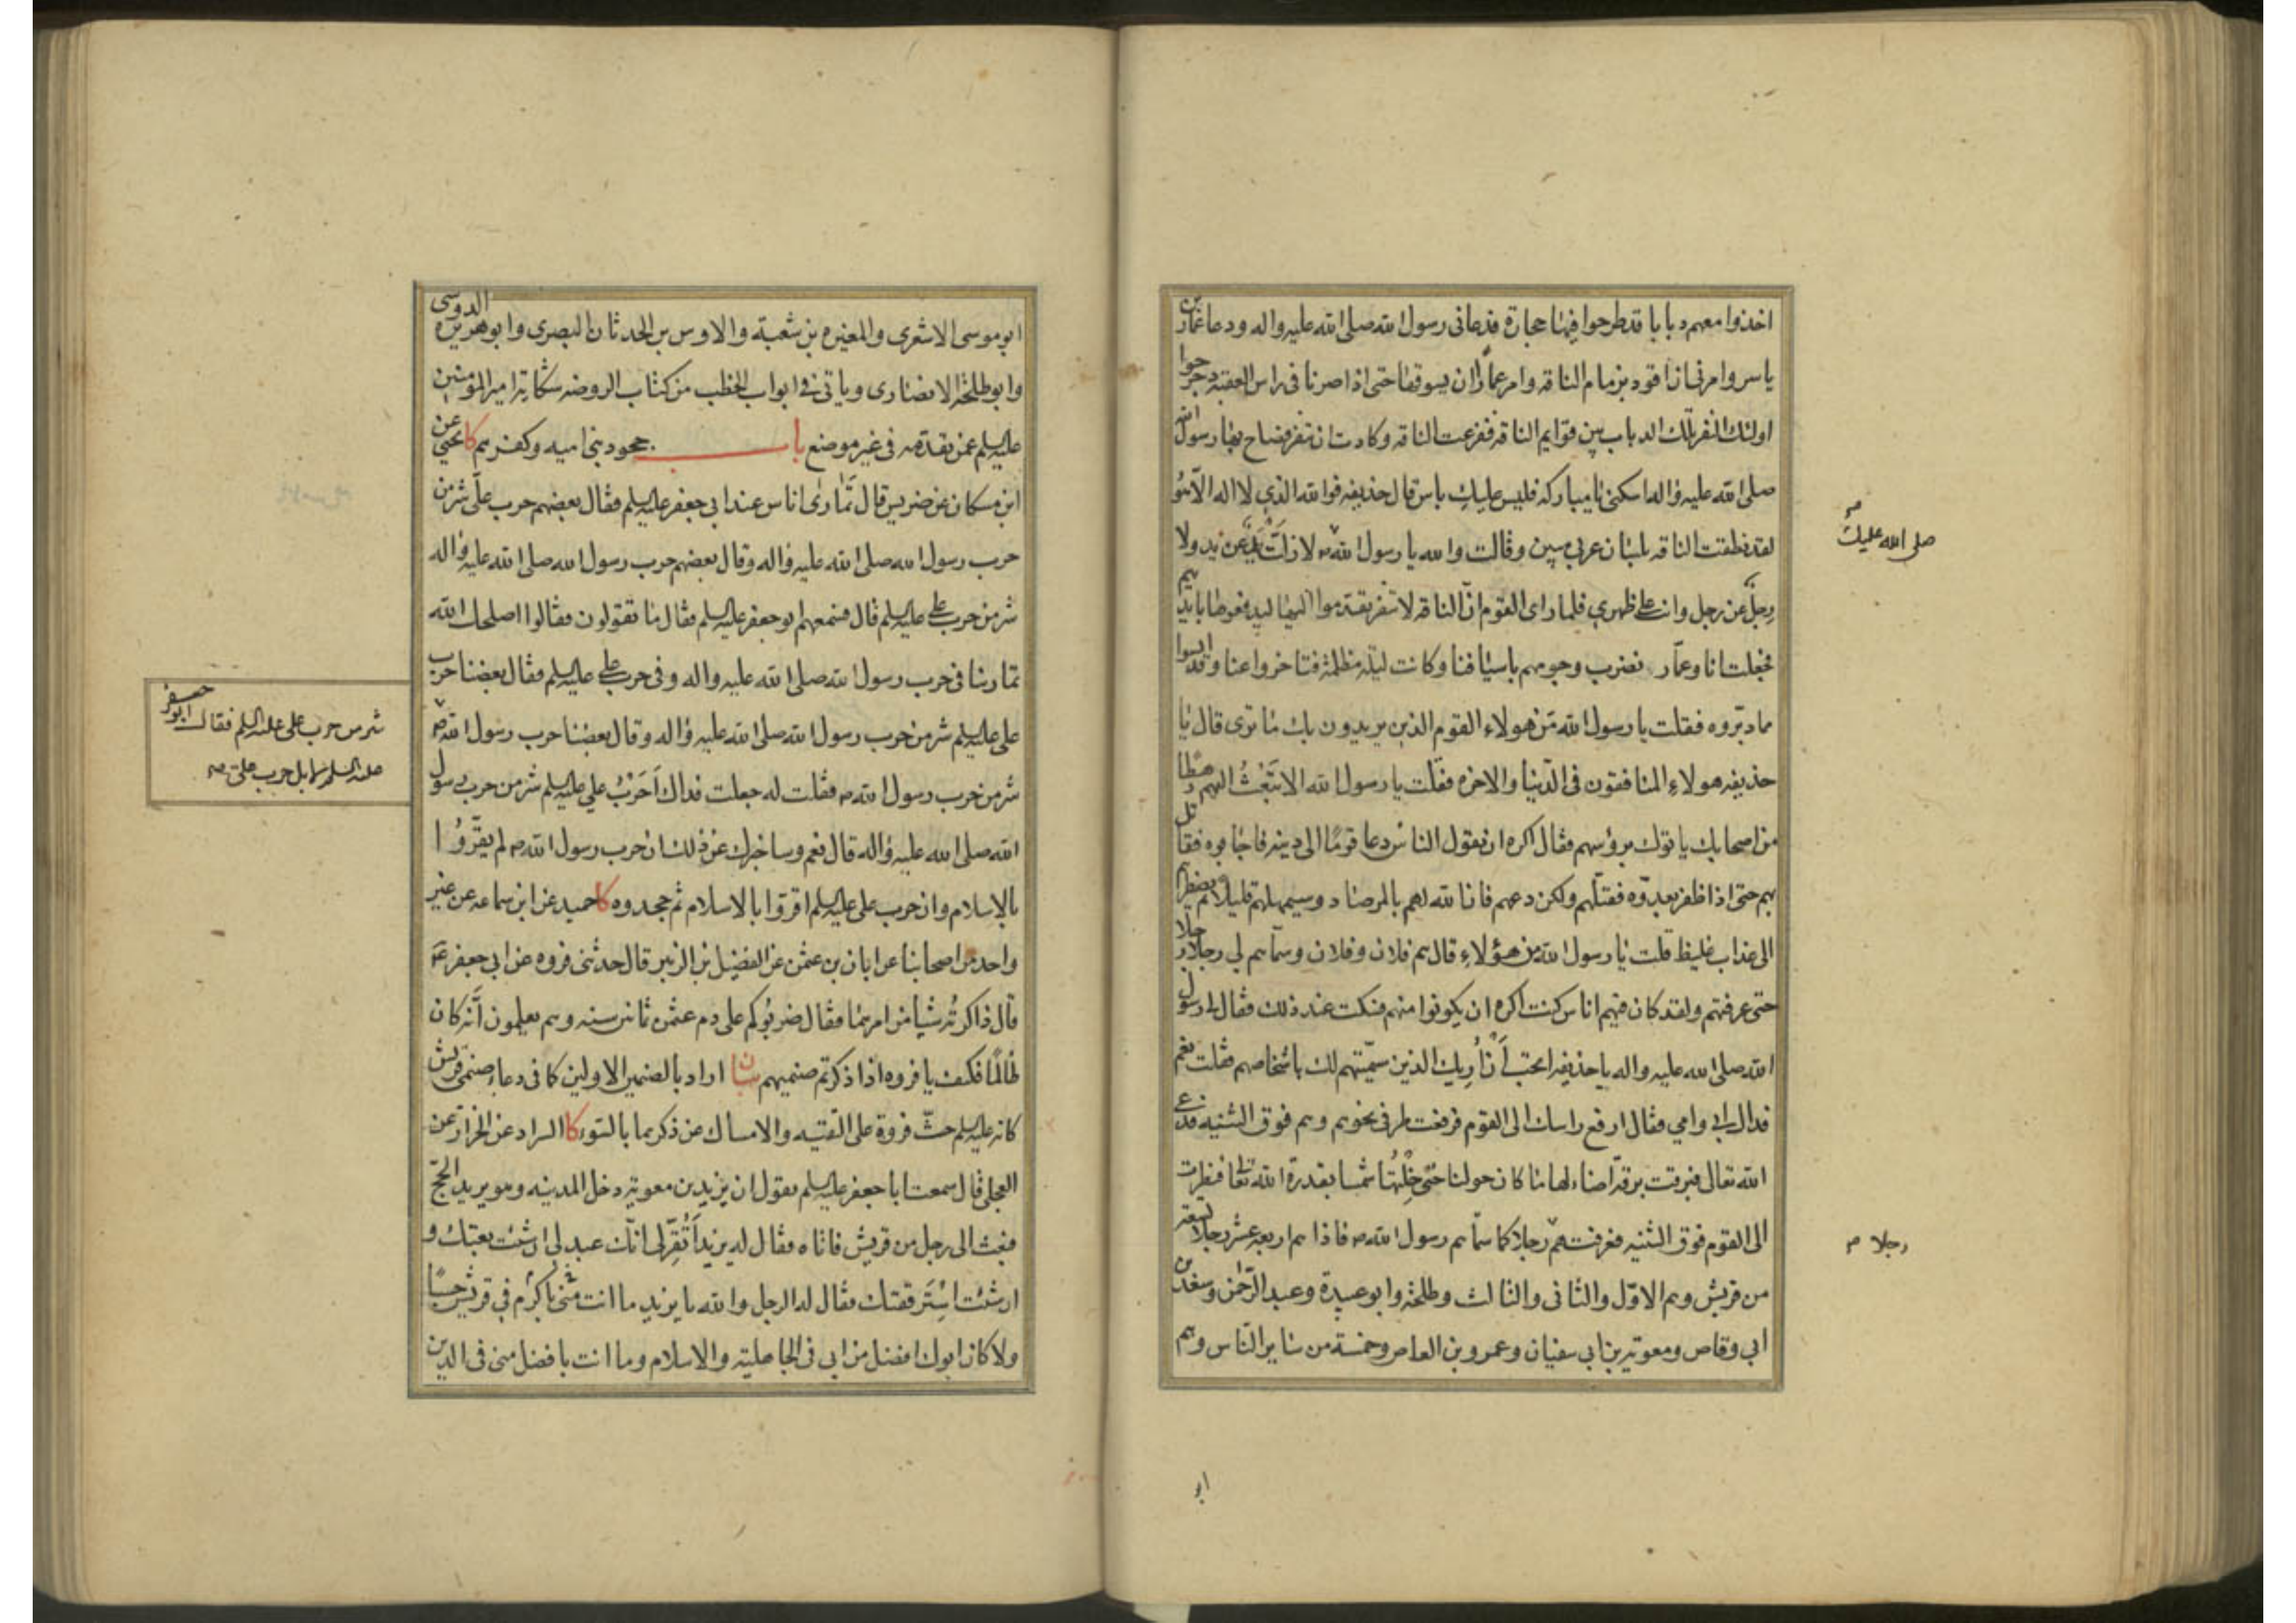 اخذوا معهم دبابا قد طرحوا فيها حجارة فدعانی رسول الله صلی الله علیه واله ودعا عمار بن
یاسر وامرنی ان اقود بزمام الناقه وامر عمارا ان یسوقها حتی اذا صرنا فی راس العقبه دحرجوا
اولئک النفر تلک الدباب بین قوایم الناقه ففزعت الناقه وکادت ان تنفر فصاح بها رسول الله
صلی الله علیه واله اسکنی یا مبارکه فلیس علیک باس قال حذیفه فوالله الذی لا اله الا هو
لقد نطقت الناقه بلسان عربی مبین وقالت والله یا رسول الله لا زلت ید عن ید ولا
رجل عن رجل وانت علی ظهری فلما رای القوم ان الناقه لا تنفر تقدموا الیها لیدفعوها بایدیهم
فجعلت انا وعمار نضرب وجوههم باسیافنا وکانت لیله مظلمه فتاخروا عنا وقد ایسوا
مما دبروه فقلت یا رسول الله من هولاء القوم الذین یریدون بک ما تری قال یا
حذیفه هولاء المنافقون فی الدنیا والاخره فقلت یا رسول الله الا تبعث الیهم رهطا
من اصحابک یاتوک برؤسهم فقال اکره ان یقول الناس دعا قوما الی دینه فاجابوه فقاتل
بهم حتی اذا ظفر بعدوه فقتلهم ولکن دعهم فان الله لهم بالمرصاد وسیمهلهم قلیلا ثم یضطرهم
الی عذاب غلیظ قلت یا رسول الله من هؤلاء قال هم فلان وفلان وسماهم لی رجلا رجلا
حتی عرفتهم ولقد کان فیهم اناس کنت اکره ان یکونوا منهم فسکت عند ذلک فقال لی رسول
الله صلی الله علیه واله یا حذیفه اتحب أن أریک الذین سمیتهم لک باشخاصهم فقلت نعم
فداک ابی وامی فقال ارفع راسک الی القوم فرفعت طرفی نحوهم وهم فوق الثنیه فدعی
الله تعالی فبرقت برقه اضاء لها ما کان حولنا حتی خلتها شمسا بقدرة الله تعالی فنظرت
الی القوم فوق الثنیه فعرفتهم رجلا کما سماهم رسول الله فاذا هم اربعه عشر رجلا تسعه
من قریش وهم الاول والثانی والثالث وطلحه وابو عبیدة وعبد الرحمن وسعد بن
ابی وقاص ومعویه بن ابی سفیان وعمرو بن العاص وخمسة من سایر الناس وهم
ابو
صلی الله علیک
رجلا
ابو موسی الاشعری والمغیره بن شعبة والاوس بن الحدثان البصری وابو هریره الدوسی
وابو طلحه الانصاری ویاتی فی ابواب الخطب من کتاب الروضه شکایة امیر المؤمنین
علیه السلم عمن تقدمه فی غیر موضع باب جحود بنی امیه وکفرهم کا یحیی عن
ابن مسکان عن ضریس قال تماری اناس عند ابی جعفر علیه السلم فقال بعضهم حرب علی شر من
حرب رسول الله صلی الله علیه واله وقال بعضهم حرب رسول الله صلی الله علیه واله
شر من حرب علی علیه السلم قال فسمعهم ابو جعفر علیه السلم فقال ما تقولون فقالوا اصلحک الله
تمارینا فی حرب رسول الله صلی الله علیه واله وفی حرب علی علیه السلم فقال بعضنا حرب
علی علیه السلم شر من حرب رسول الله صلی الله علیه واله وقال بعضنا حرب رسول الله ص
شر من حرب رسول الله ص فقلت له جعلت فداک أحرب علی علیه السلم شر من حرب رسول
الله صلی الله علیه واله قال نعم وساخبرک عن ذلک ان حرب رسول الله ص لم یقروا
بالاسلام وان حرب علی علیه السلم اقروا بالاسلام ثم جحدوه کا حمید عن ابن سماعه عن غیر
واحد من اصحابنا عن ابان بن عثمن عن الفضیل بن الزبیر قال حدثنی فروه عن ابی جعفر ع
قال ذاکرته شیا من امرهما فقال ضربوکم علی دم عثمن ثمانین سنه وهم یعلمون أنه کان
ظالما فکیف یا فروه اذا ذکرتم صنمیهم بیان اراد بالصنمین الاولین کما فی دعاء صنمی قریش
کانه علیه السلم حث فروة علی التقیه والامساک عن ذکرهما بالسوء کا السراد عن الخراز عن
العجلی قال سمعت ابا جعفر علیه السلم یقول ان یزید بن معویه دخل المدینه وهو یرید الحج
فبعث الی رجل من قریش فاتاه فقال له یزید أتقر لی انک عبد لی ان شئت بعتک و
ان شئت استرققتک فقال له الرجل والله یا یزید ما انت باکرم منی فی قریش حسبا
ولا کان ابوک افضل من ابی فی الجاهلیه والاسلام وما انت بافضل منی فی الدین
شر من حرب علی علیه السلم فقال ابو جعفر
علیه السلم لا بل حرب علی